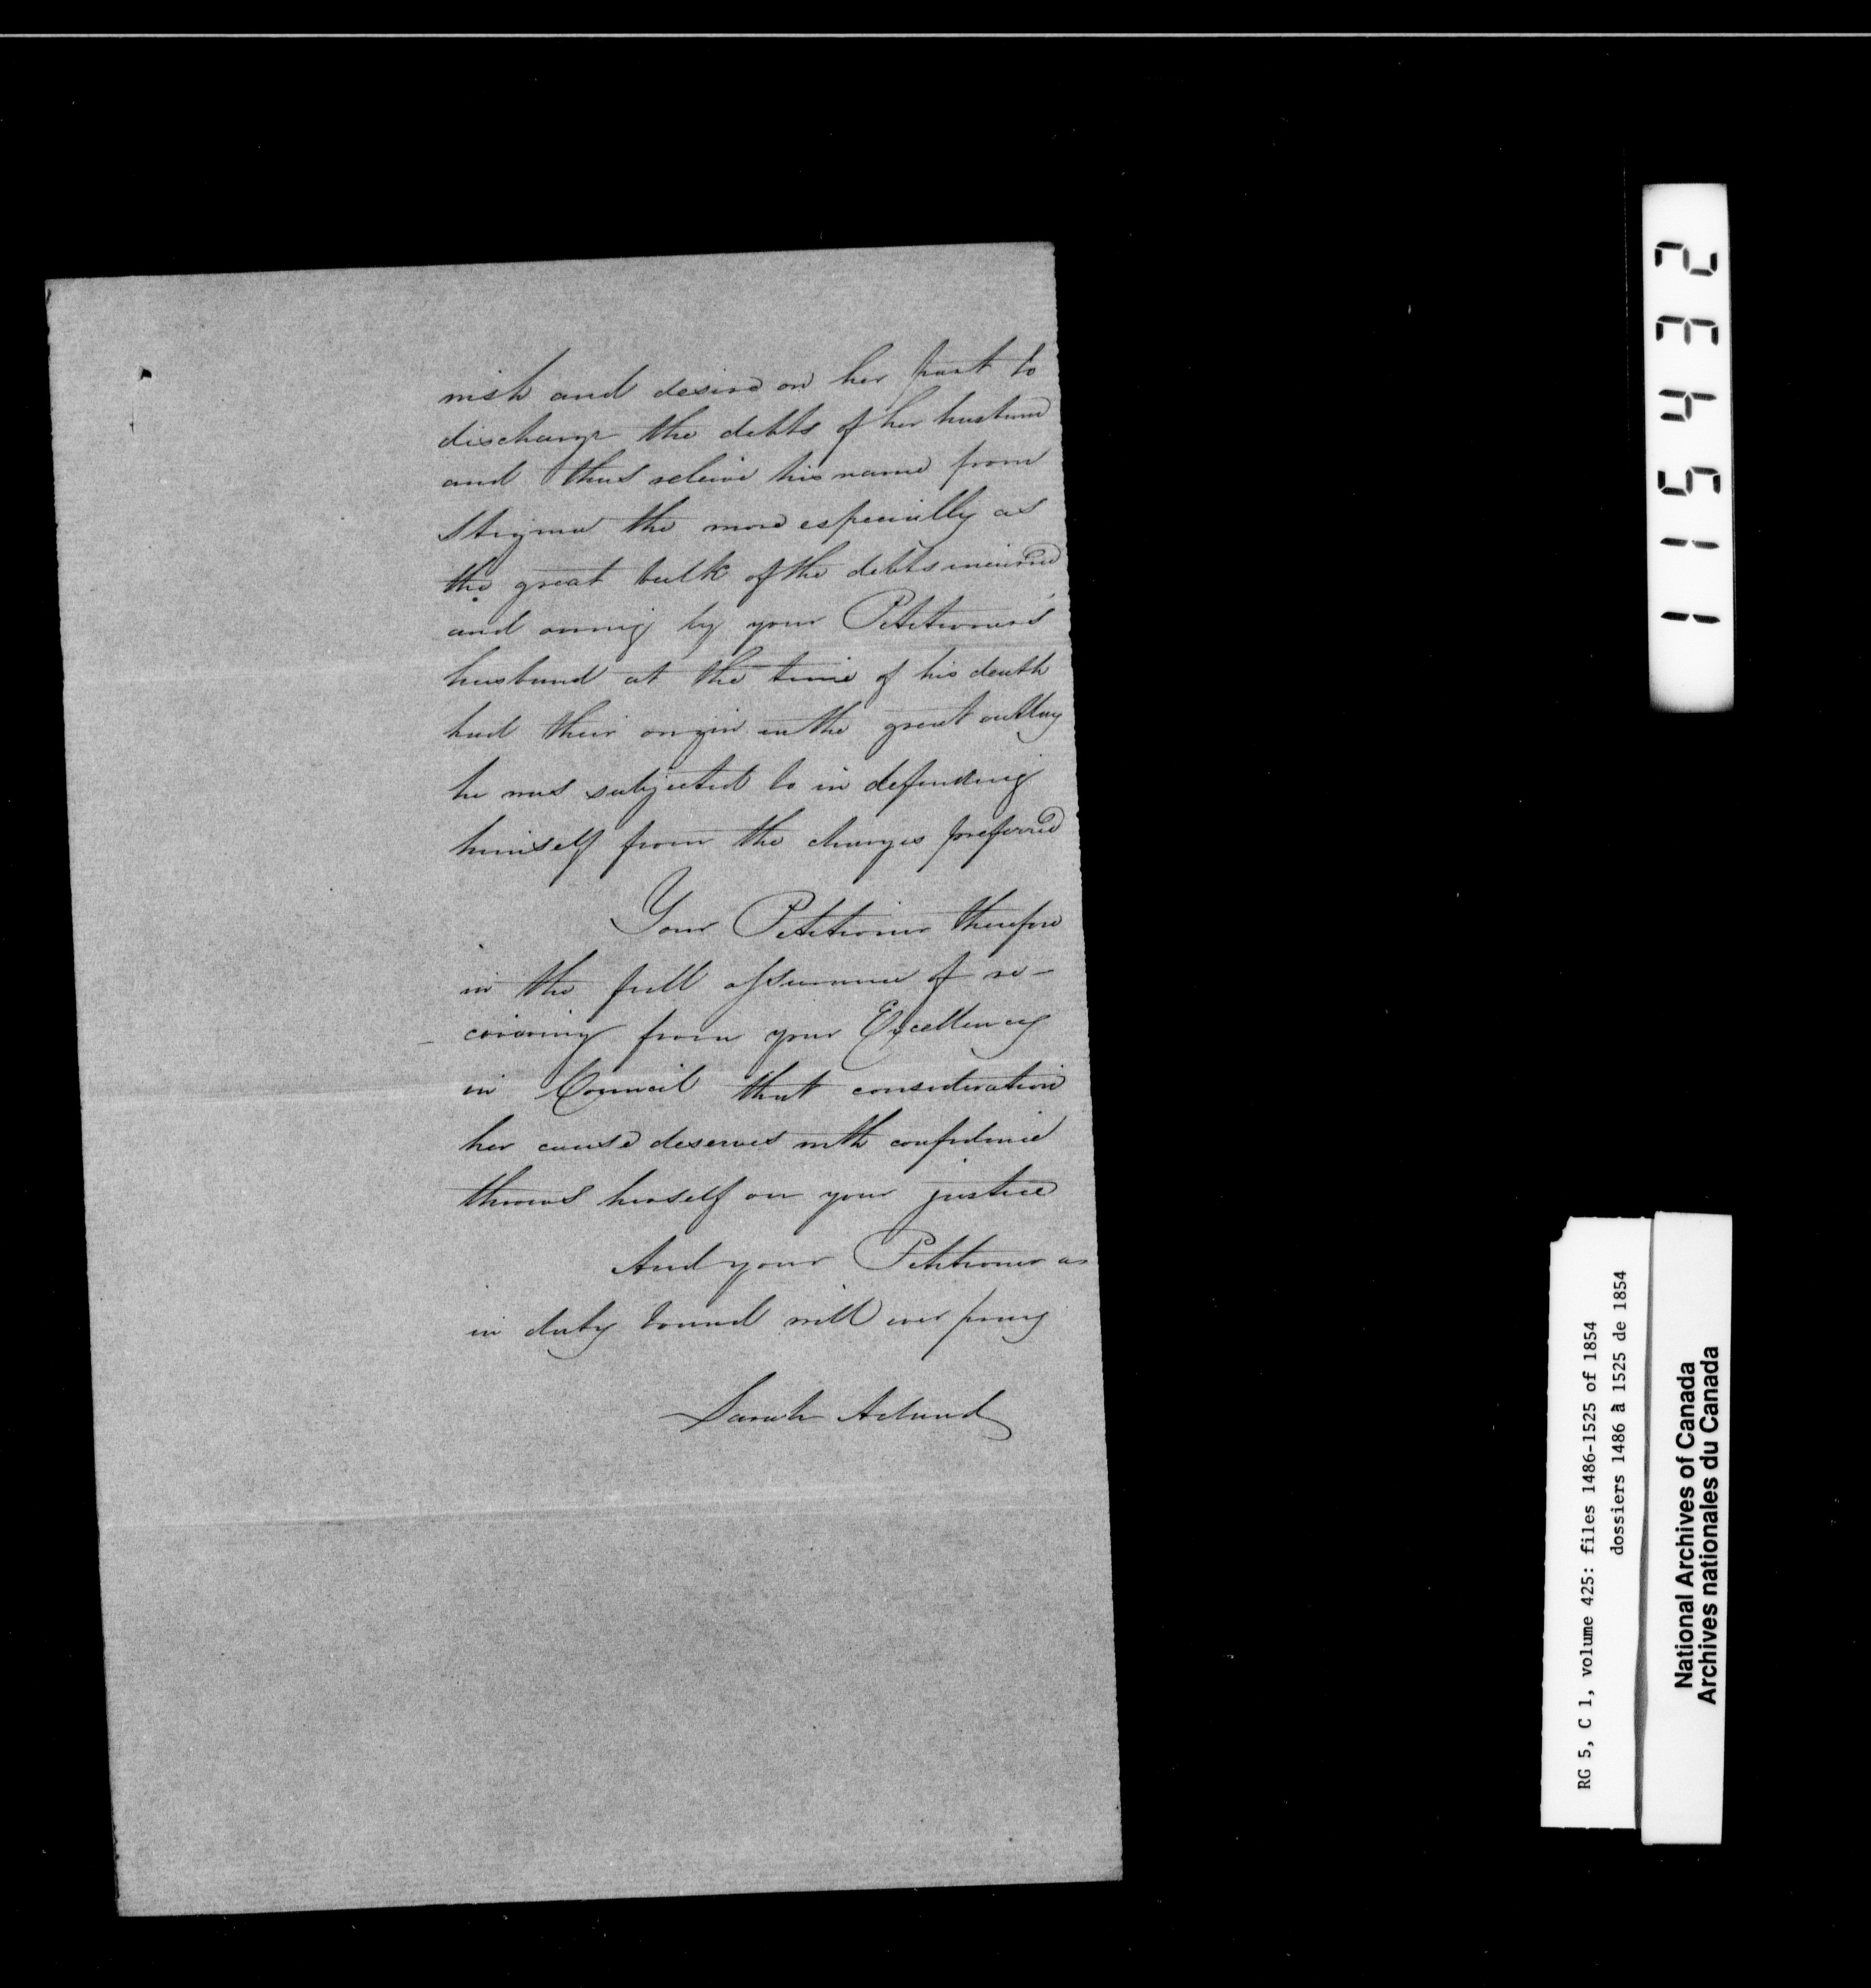 wish and desire on her part to
discharge the debts of her husband
and thus relieve his name from
stigma the more especially as
the great bulk of the debts incurred
and owing by your Petitioner's
husband at the time of his death
had their origin in the great outlay
he was subjected to in defending
himself from the charges preferred
Your Petitioner therefore
in the full assurance of re-
-ceiving from your Excellency
in Council that consideration
her cause deserves with confidence
throws herself on your justice
And your Petitioner as
in duty bound will ever pray
Sarah Acland
115432
RG 5, C 1, volume 425: files 1486-1525 of 1854
dossiers 1486 à 1525 de 1854
National Archives of Canada
Archives nationales du Canada